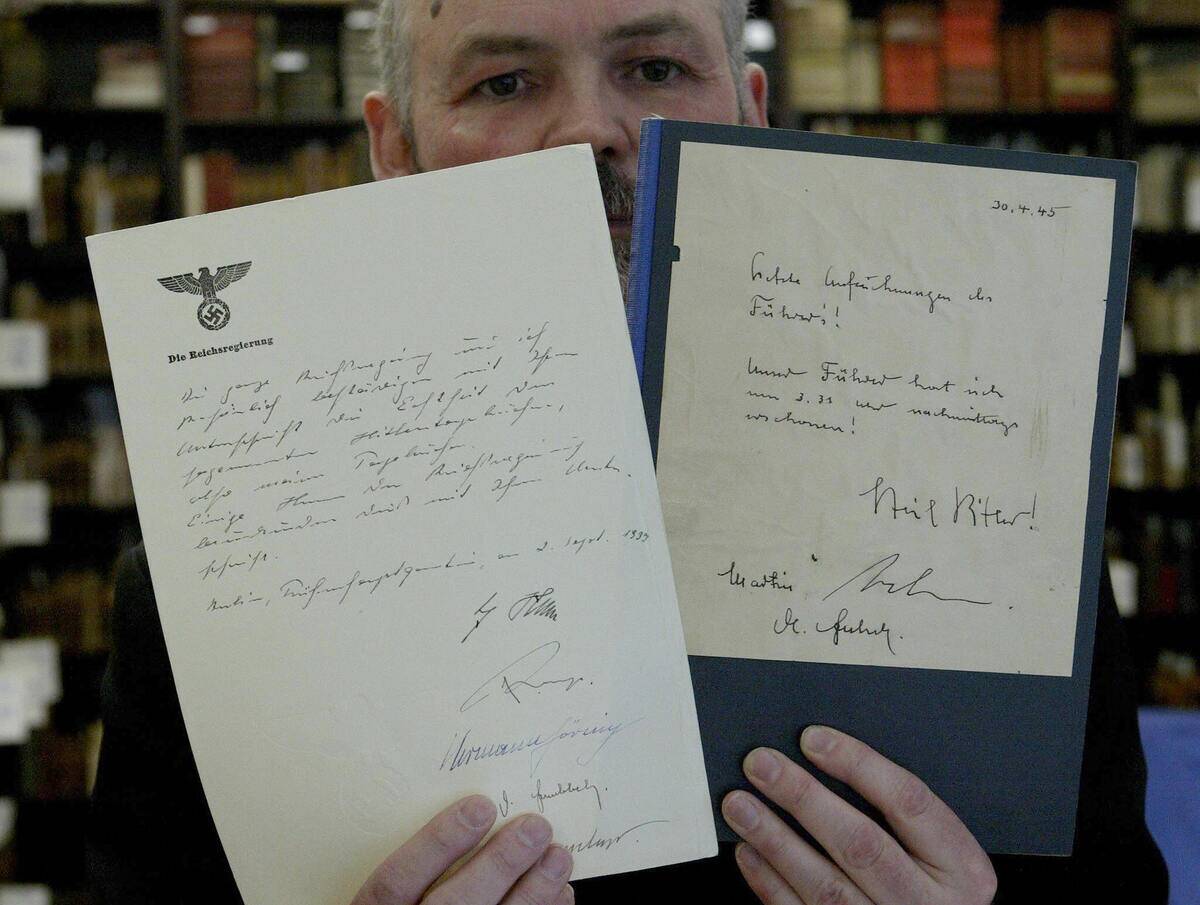 Die Reichsregierung
Die ganze Reichsregierung und ich
persönlich bestätigen mit Ihrer
Unterschrift die Echtheit der
sogenannten Hitlertagebücher,
also meine Tagebücher.
Einige Herren der Reichsregierung
beurkunden dies mit Ihrer Unter-
schrift.
Berlin, Führerhauptquartier, am 2. Sept. 1939
Hermann Göring
30.4.45
Letzte Aufzeichnungen des
Führers!
Unser Führer hat sich
um 3.31 Uhr nachmittags
erschossen!
Heil Hitler!
Martin